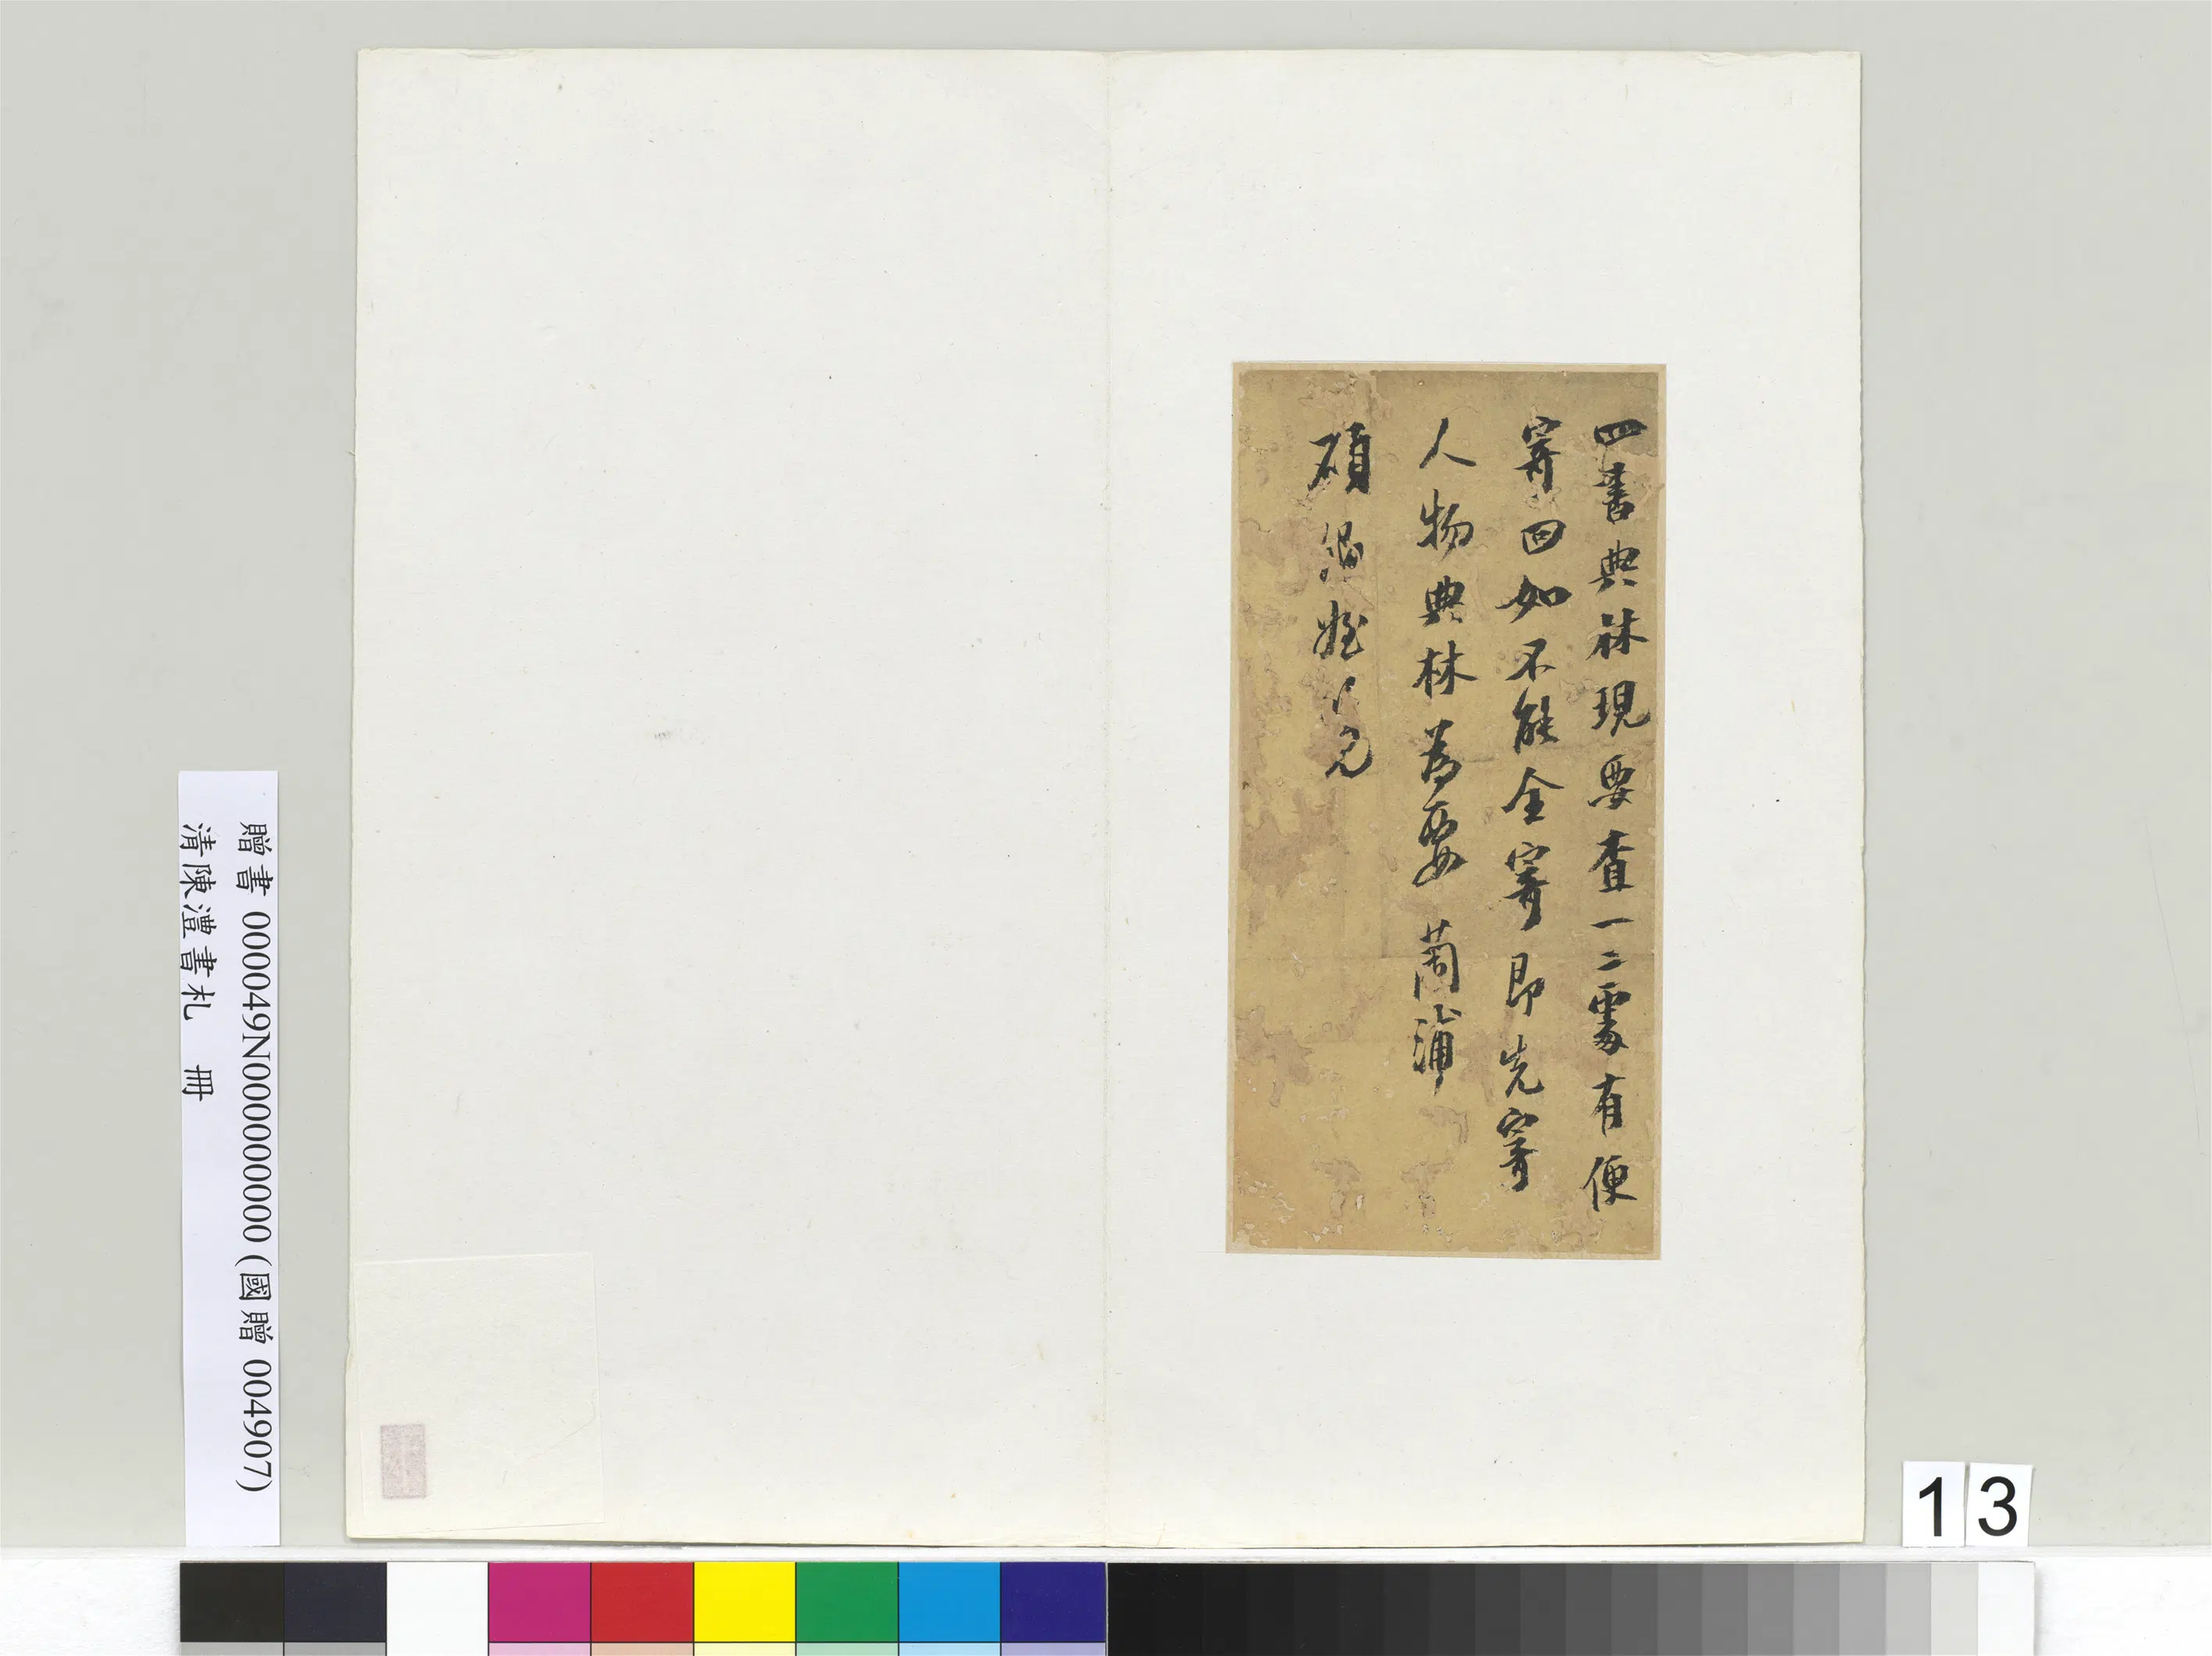 四書典林現要查一二處有便
寄回如不能全寄即先寄
人物典林為要 蘭浦
碩卿姪公覽
贈書 000049N000000000 (國贈 004907)
清陳澧書札 冊
13